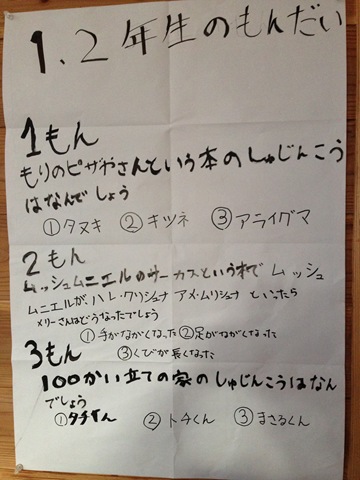 1.2年生のもんだい
1もん
もりのピザやさんという本のしゅじんこう
はなんでしょう
①タヌキ ②キツネ ③アライグマ
2もん
ムッシュムニエルのサーカスという本で ムッシュ
ムニエルが、ハレ・クリシュナ アメ・ムリシュナ といったら
メリーさんはどうなったでしょう
①手がながくなった ②足がながくなった
③くびが長くなった
3もん
100かい立ての家のしゅじんこうはなん
でしょう
①タチくん ②トチくん ③まさるくん